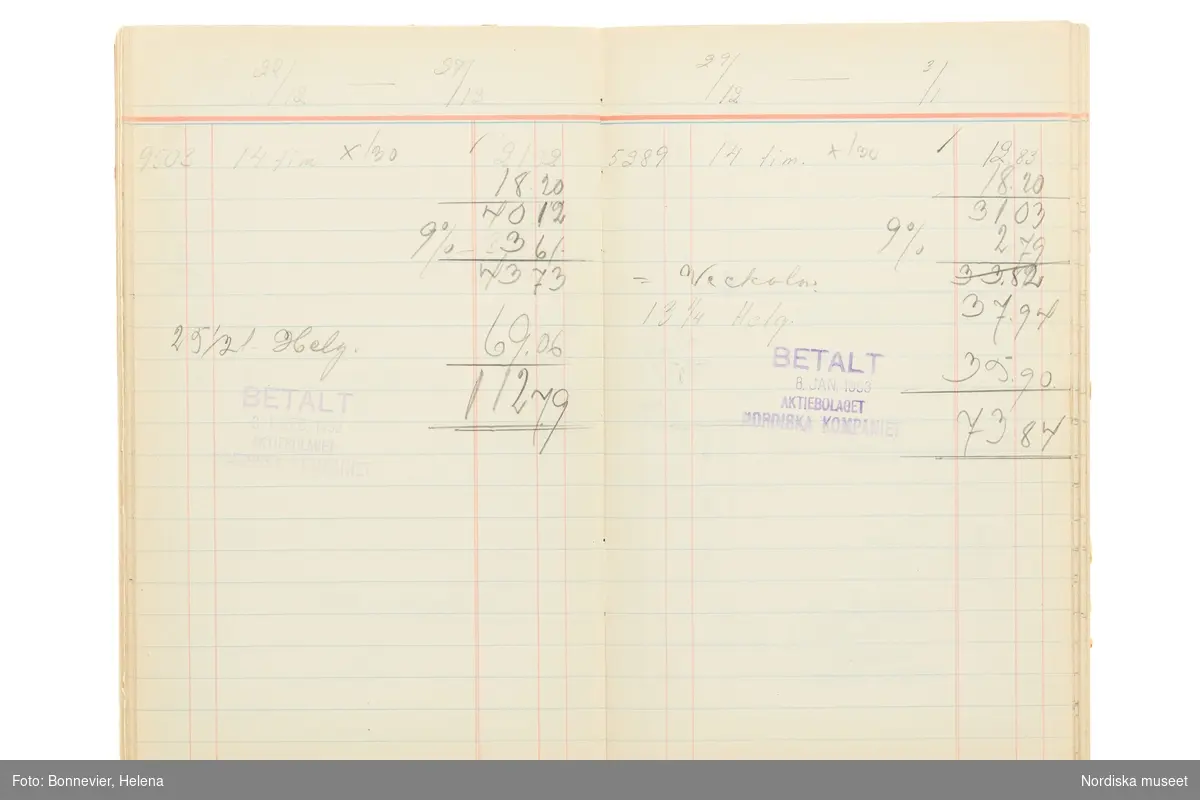 22/12 — 27/12
9503 14 tim x 1/30 21 92
18.20
40 12
9% 3 61
43 73
25 1/2 Helg. 69.06
112.79
BETALT
AKTIEBOLAGET
29/12 — 3/1
5289 14 tim. x 1/30 12 83
18.20
31 03
9% 2 79
33.82
= Veckolön. 37.94
13 1/4 Helg.
35.90
73 84
BETALT
8. JAN. 1953
AKTIEBOLAGET
NORDISKA KOMPANIET
Foto: Bonnevier, Helena
Nordiska museet